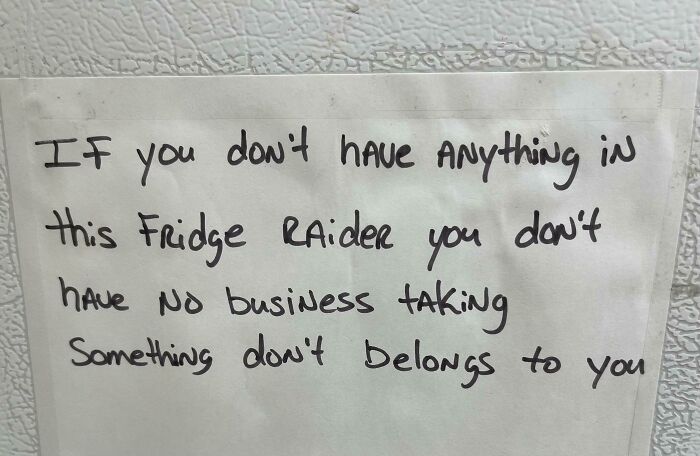 IF you don't have Anything in
this Fridge Raider you don't
have no business taking
Something don't belongs to you